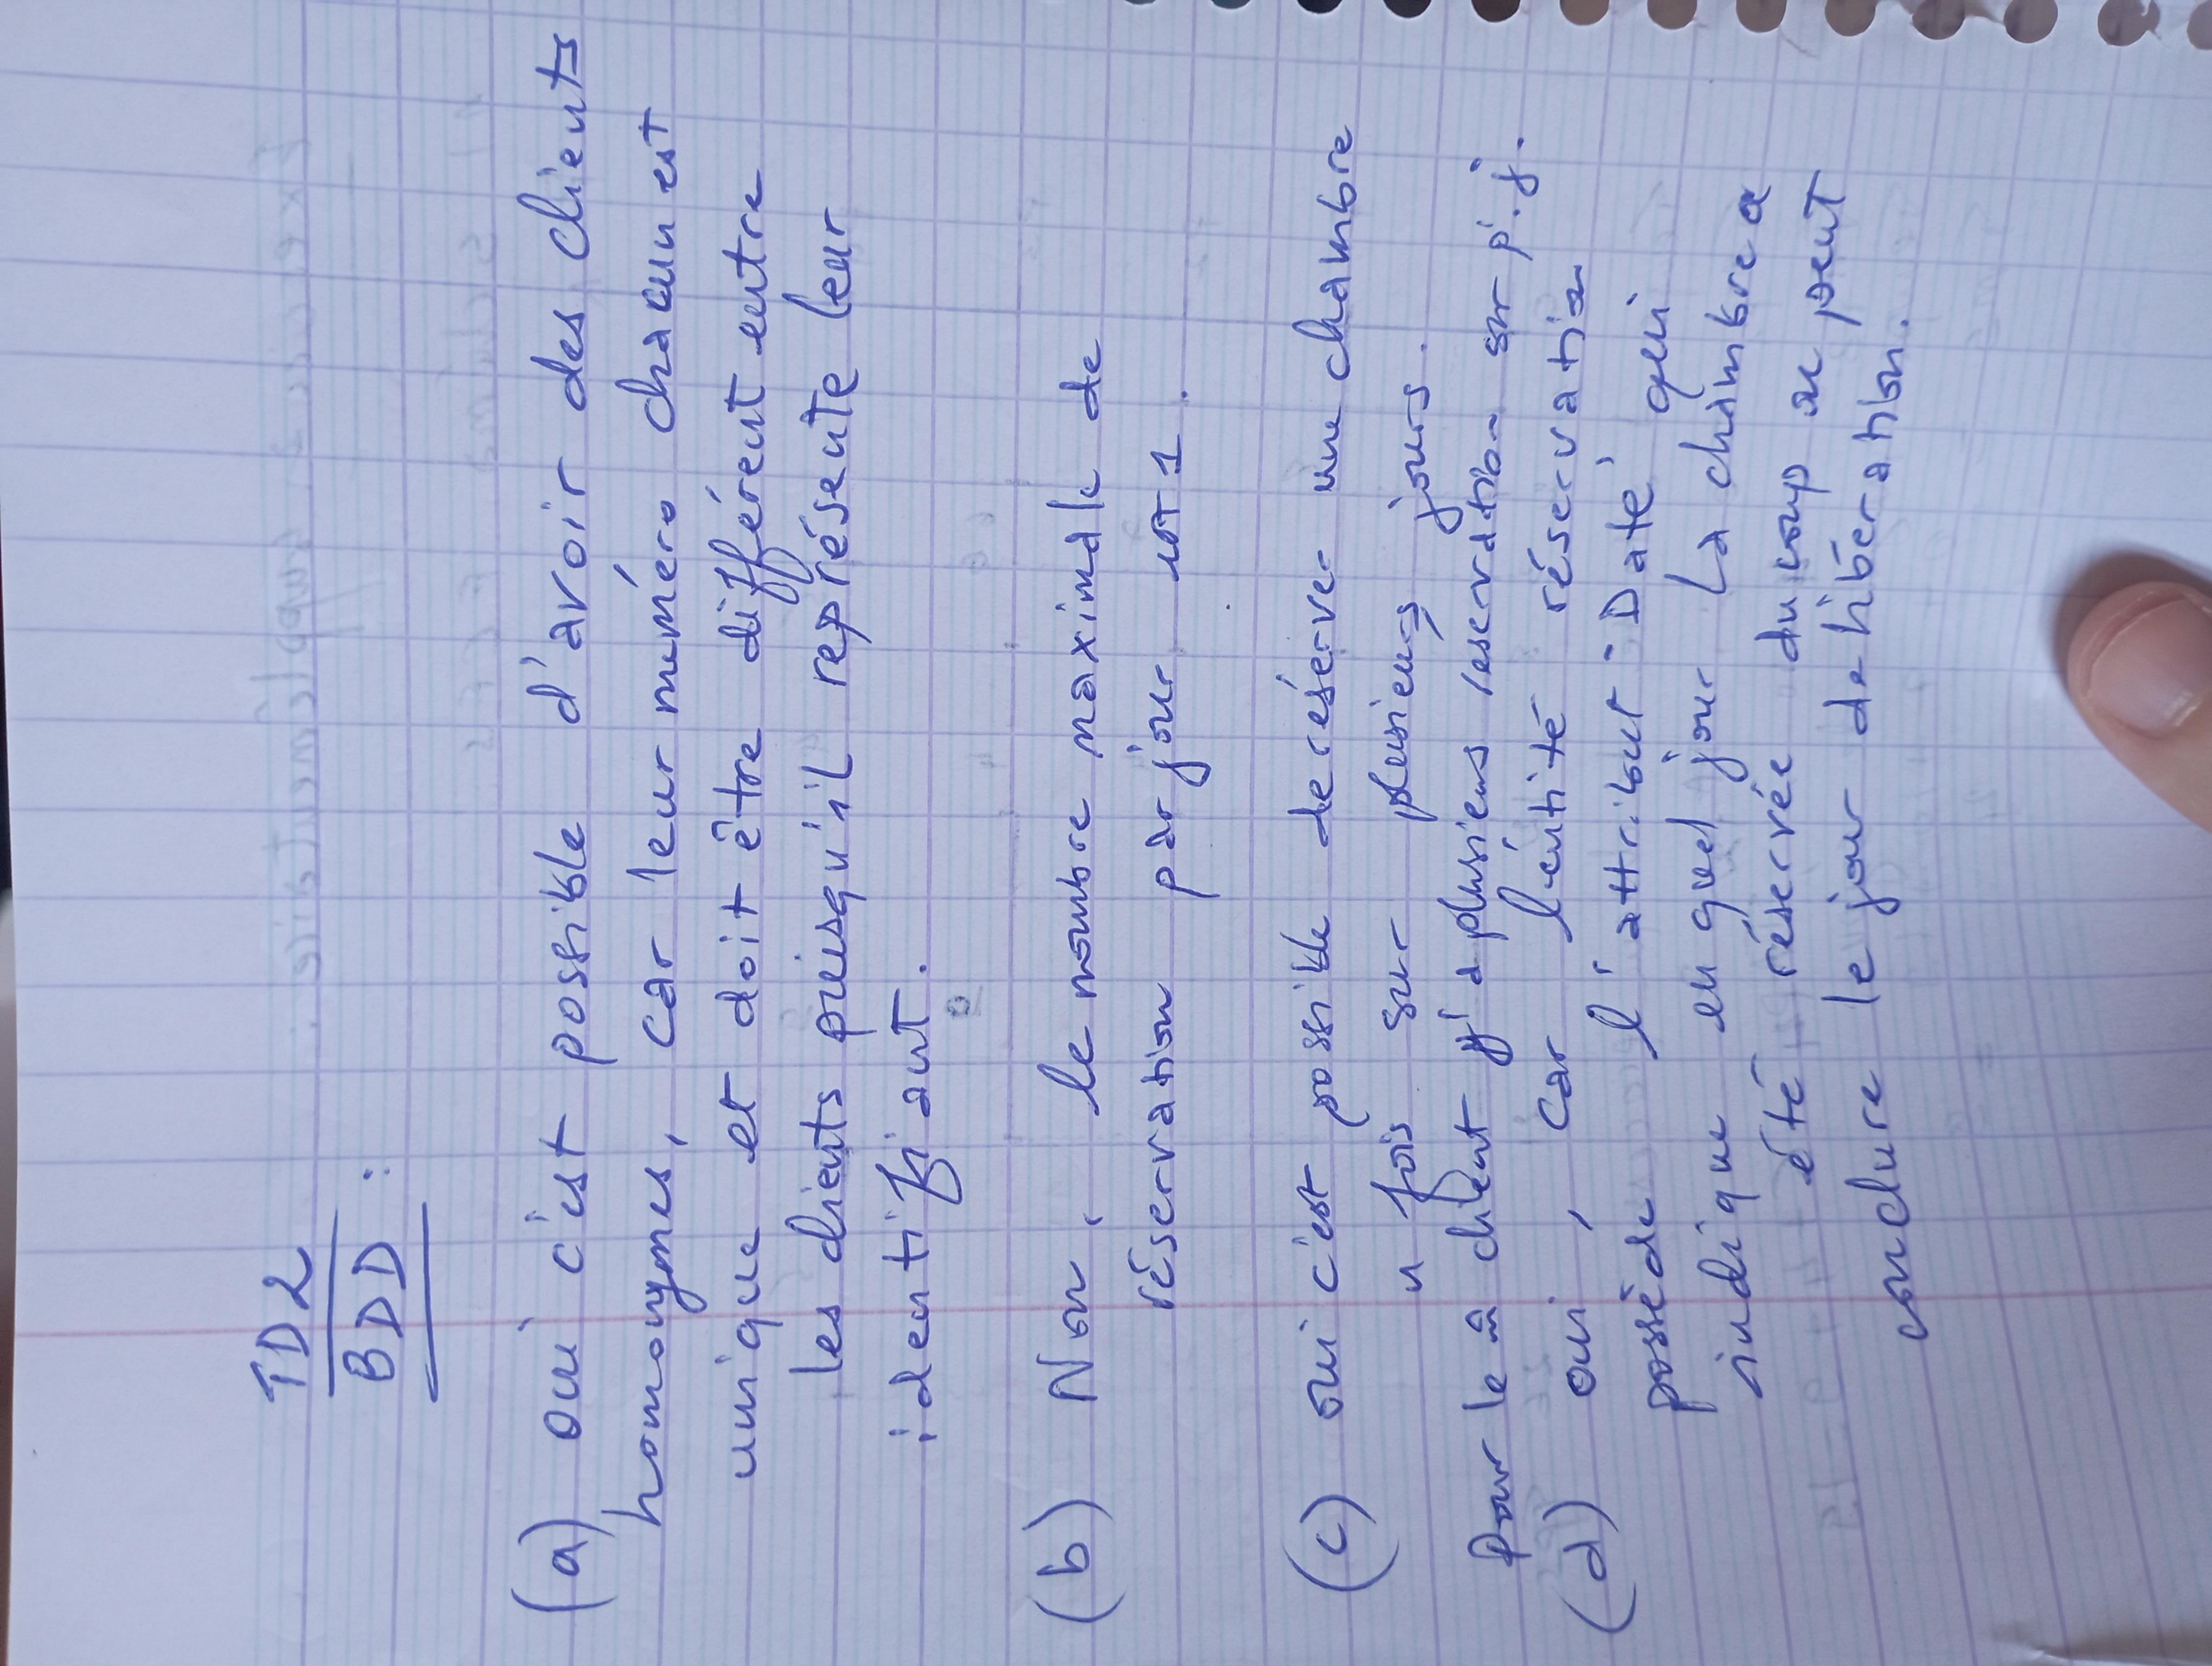 TD2
BDD :
(a) oui c'est possible d'avoir des clients
homonymes, car leur numéro chacun est
unique et doit être différent entre
les clients puisqu'il représente leur
identifiant.
(b) Non, le nombre maximale de
réservation par jour est 1.
(c) oui c'est possible de réserver une chambre
n fois sur plusieurs jours.
Pour le m̂ client y'a plusieurs réservation sur p.j.
(d) oui, car l'entité réservation
possède l'attribut "Date" qui
indique en quel jour la chambre a
été réservée du coup on peut
conclure le jour de libération.